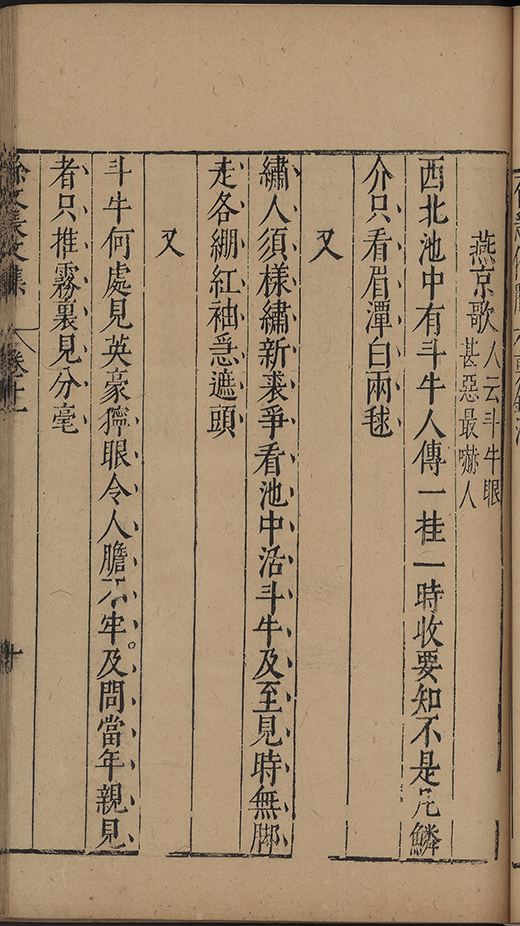 燕京歌 人云斗牛眼
甚惡最嚇人
西北池中有斗牛人傳一挂一時收要知不是凡鱗
介只看眉潭白兩毬
又
繡人須樣繡新裘爭看池中活斗牛及至見時無脚
走各綳紅袖急遮頭
又
斗牛何處見英豪獰眼令人膽不牢及問當年親見
者只推霧裏見分毫
徐文長文集 卷十一 十